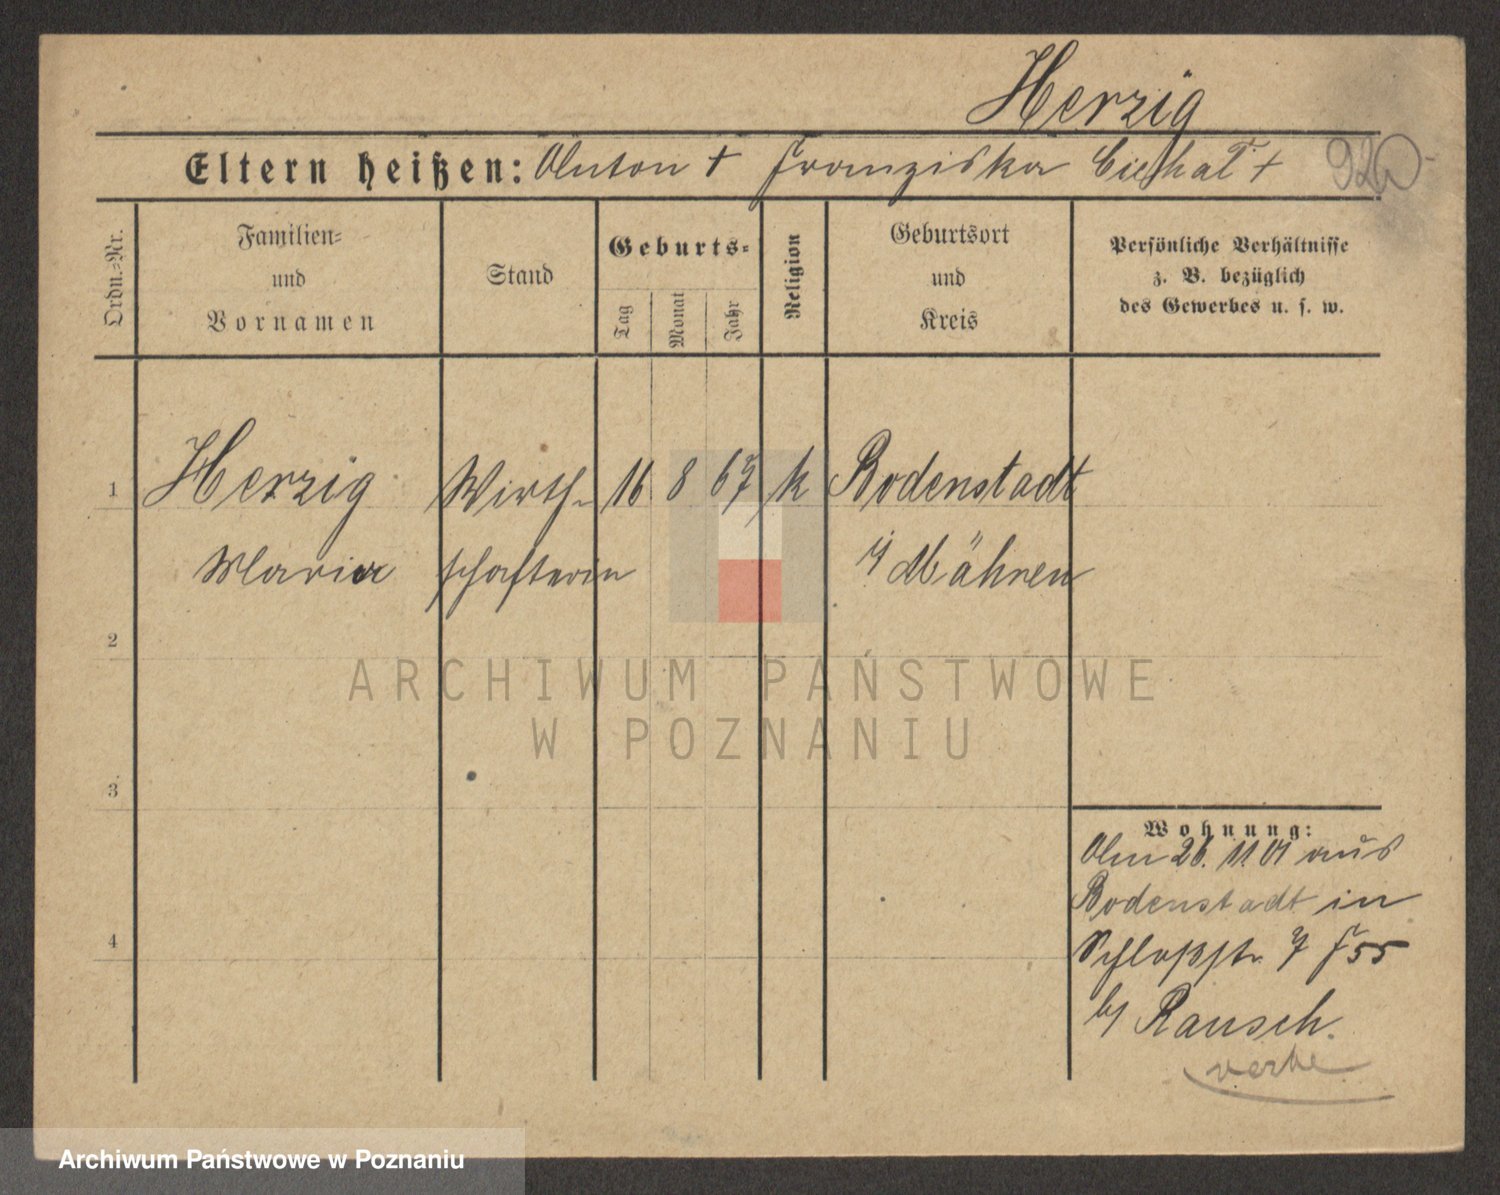 Herzig
Eltern heißen: Anton + Franziska +
920
Ordn.-Nr.
Familien-
und
Vornamen
Stand
Geburts-
Tag
Monat
Jahr
Religion
Geburtsort
und
Kreis
Persönliche Verhältnisse
z. B. bezüglich
des Gewerbes u. s. w.
1 Herzig Wirth- 16 8 67 k Bodenstadt
Maria schafterin i/ Mähren
2
3
4
ARCHIWUM PAŃSTWOWE
W POZNANIU
Wohnung:
Am 26. 11. 01 aus
Bodenstadt in
Schloßstr. 7 F 55
b/ Rausch.
Archiwum Państwowe w Poznaniu